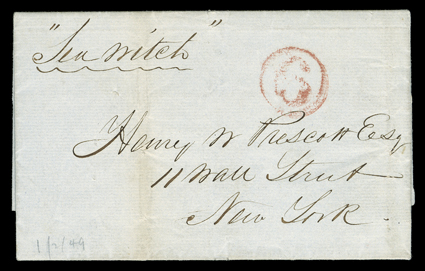 "Sea Witch"
6
Henry W Prescott Esq
11 Wall Street
New York.